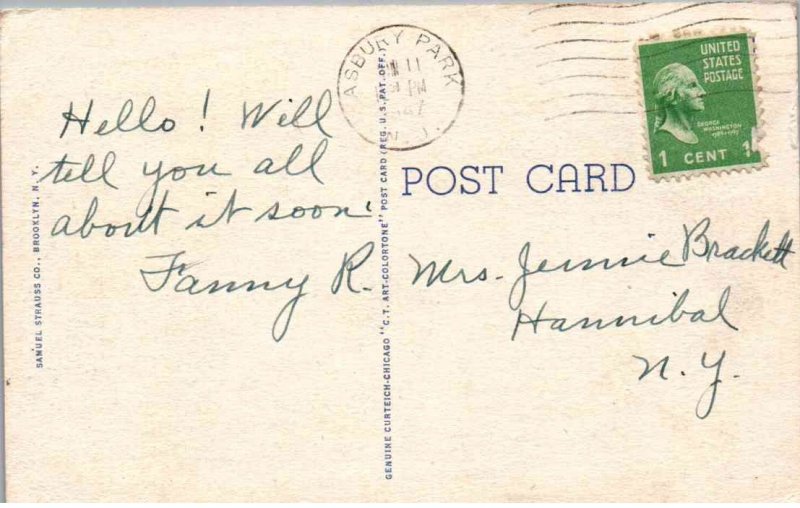 Hello! Will
tell you all
about it soon.
Fanny R.
SAMUEL STRAUSS CO., BROOKLYN, N.Y.
GENUINE CURTEICH-CHICAGO "C.T. ART-COLORTONE" POST CARD (REG. U.S. PAT. OFF.)
ASBURY PARK
11
PM
N.J.
UNITED
STATES
POSTAGE
GEORGE
WASHINGTON
1789-1797
1 CENT 1
POST CARD
Mrs. Jennie Brackett
Hannibal
N.Y.